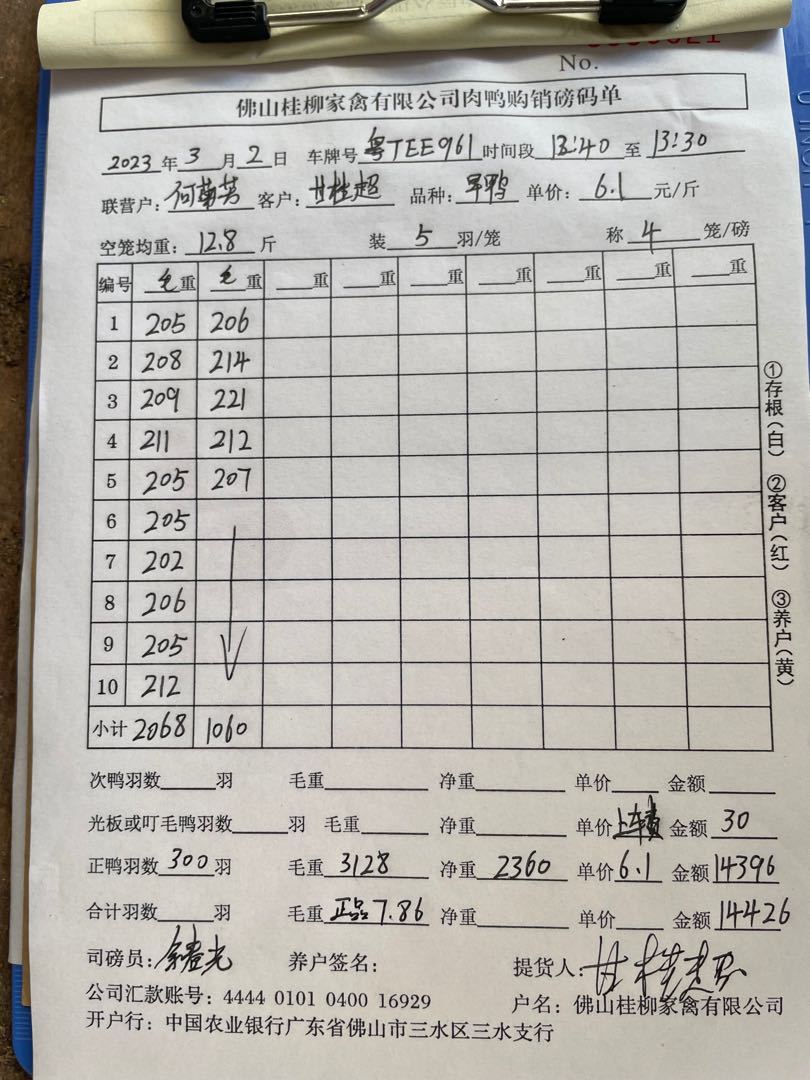 No.
佛山桂柳家禽有限公司肉鸭购销磅码单
2023 年 3 月 2 日 车牌号 粤TEE961 时间段 13:40 至 13:30
联营户: 何菊芳 客户: 甘桂超 品种: 旱鸭 单价: 6.1 元/斤
空笼均重: 12.8 斤 装 5 羽/笼 称 4 笼/磅
编号 毛重 毛重 ___重 ___重 ___重 ___重 ___重 ___重 ___重
1 205 206
2 208 214
3 209 221
4 211 212
5 205 207
6 205
7 202
8 206
9 205
10 212
小计 2068 1060
①存根(白) ②客户(红) ③养户(黄)
次鸭羽数_____羽 毛重_____ 净重_____ 单价____ 金额_____
光板或叮毛鸭羽数_____羽 毛重_____ 净重_____ 单价 上车费 金额 30
正鸭羽数 300 羽 毛重 3128 净重 2360 单价 6.1 金额 14396
合计羽数_____羽 毛重 正品7.86 净重_____ 单价____ 金额 14426
司磅员: 养户签名: 提货人: 甘桂超
公司汇款账号: 4444 0101 0400 16929 户名: 佛山桂柳家禽有限公司
开户行: 中国农业银行广东省佛山市三水区三水支行